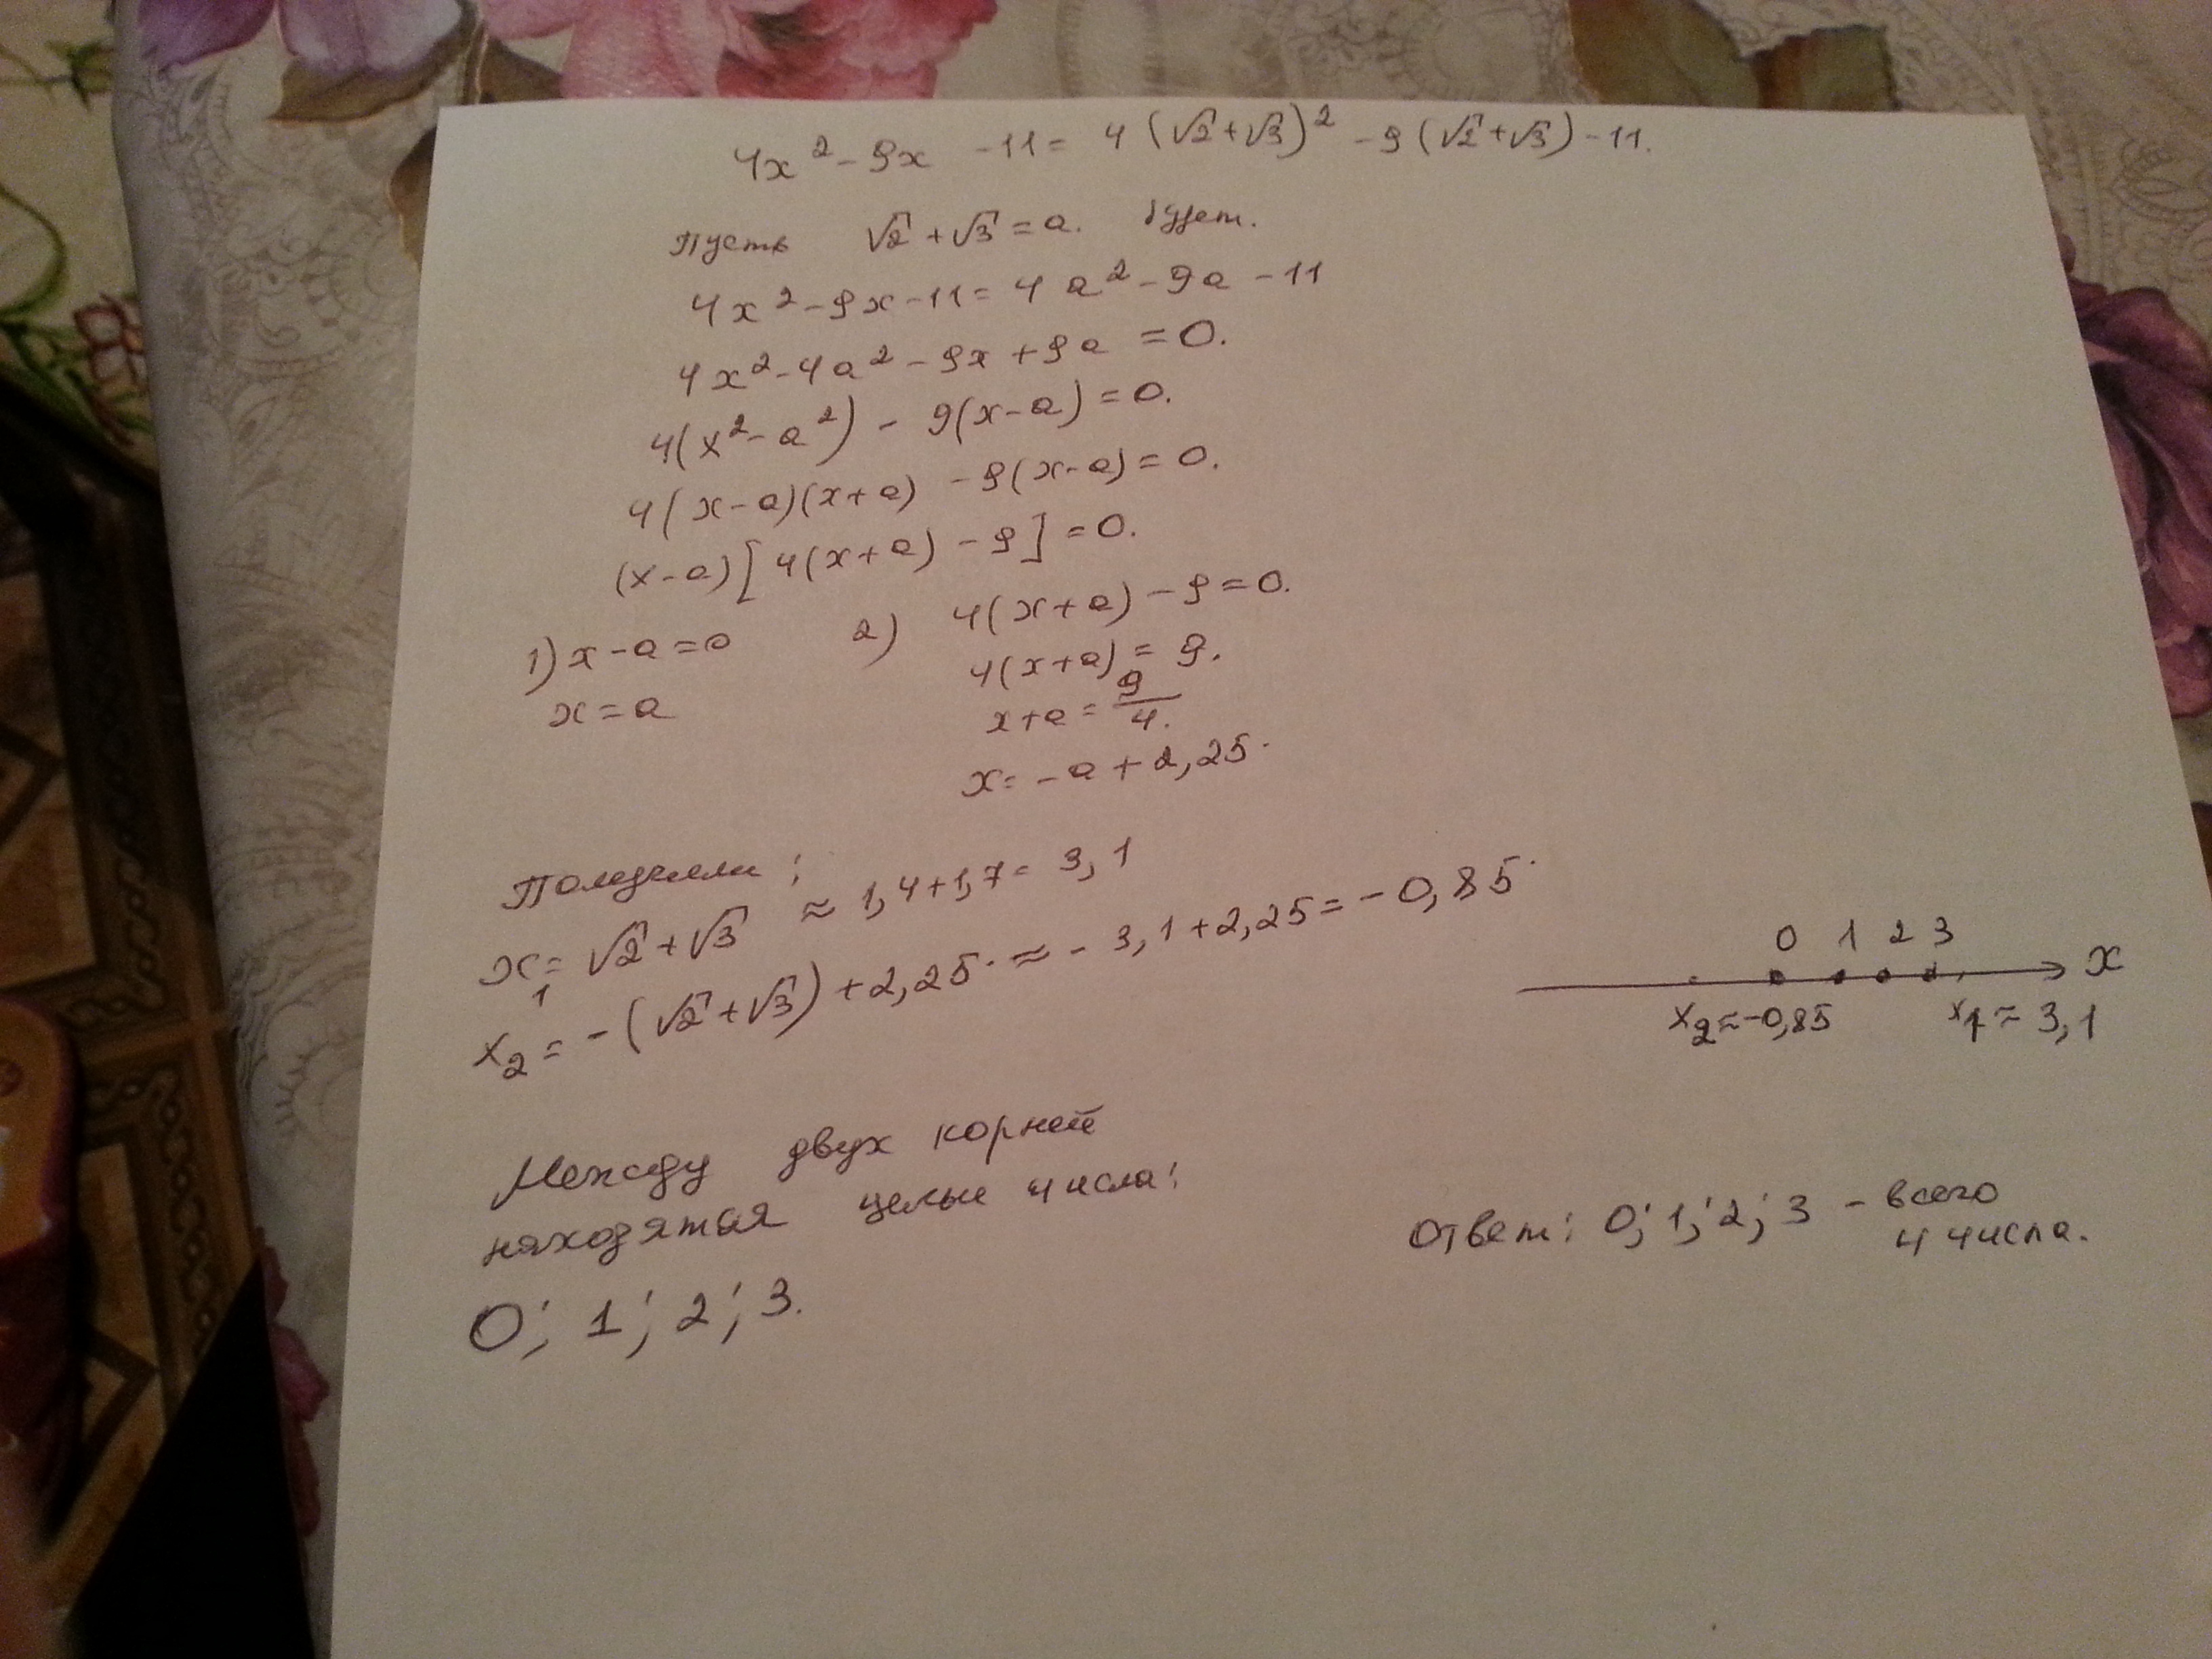 4x² - 9x - 11 = 4(√2 + √3)² - 9(√2 + √3) - 11.
Пусть √2 + √3 = a. будет.
4x² - 9x - 11 = 4a² - 9a - 11
4x² - 4a² - 9x + 9a = 0.
4(x² - a²) - 9(x - a) = 0.
4(x - a)(x + a) - 9(x - a) = 0.
(x - a)[4(x + a) - 9] = 0.
1) x - a = 0
x = a
2) 4(x + a) - 9 = 0.
4(x + a) = 9.
x + a = 9/4.
x = -a + 2,25.
Получили:
x₁ = √2 + √3 ≈ 1,4 + 1,7 = 3,1
x₂ = -(√2 + √3) + 2,25 ≈ -3,1 + 2,25 = -0,85.
0 1 2 3
x
x₂ ≈ -0,85 x₁ ≈ 3,1
Между двух корней
находятся целые числа:
0; 1; 2; 3.
Ответ: 0; 1; 2; 3 - всего
4 числа.